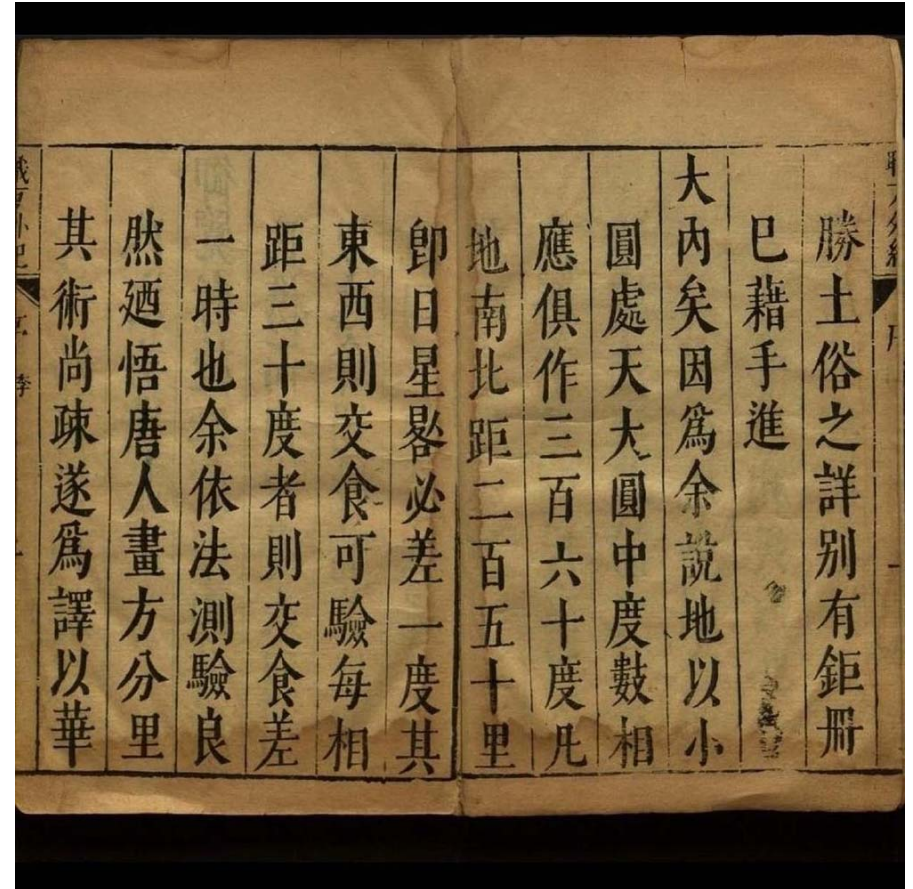 勝土俗之詳别有鉅冊
巳藉手進
大內矣因爲余説地以小
圓處天大圓中度數相
應俱作三百六十度凡
地南北距二百五十里
卽日星晷必差一度其
東西則交食可驗每相
距三十度者則交食差
一時也余依法測驗良
然廼悟唐人畫方分里
其術尚疎遂爲譯以華